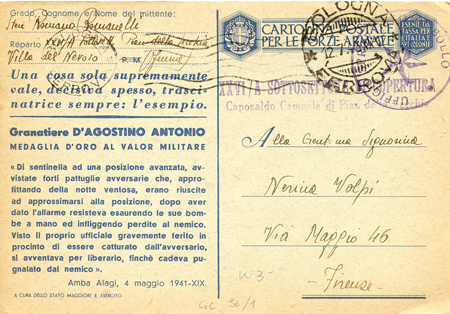 Grado, Cognome e Nome del mittente:
Romano Romanelli
Reparto XXVI/A
Villa del Nevoso P. M. (Fiume)
Una cosa sola supremamente
vale, decisiva spesso, trasci-
natrice sempre: l'esempio.
Granatiere D'AGOSTINO ANTONIO
MEDAGLIA D'ORO AL VALOR MILITARE
« Di sentinella ad una posizione avanzata, av-
vistate forti pattuglie avversarie che, appro-
fittando della notte ventosa, erano riuscite
ad approssimarsi alla posizione, dopo aver
dato l'allarme resisteva esaurendo le sue bom-
be a mano ed infliggendo perdite al nemico.
Visto il proprio ufficiale gravemente ferito in
procinto di essere catturato dall'avversario,
si avventava per liberarlo, finchè cadeva pu-
gnalato dal nemico ».
Amba Alagi, 4 maggio 1941-XIX.
A CURA DELLO STATO MAGGIORE R. ESERCITO
CARTOLINA POSTALE
PER LE FORZE ARMATE
ESENTE DA
TASSA PER
L'ITALIA E
COLONIE
BOLOGNA
FERROVIA
XXVI/A SOTTOSETTORE COPERTURA
Caposaldo Centrale di Pian
UFFICIO
Alla Gent.ma Signorina
Nerina Volpi
Via Maggio 46
Firenze